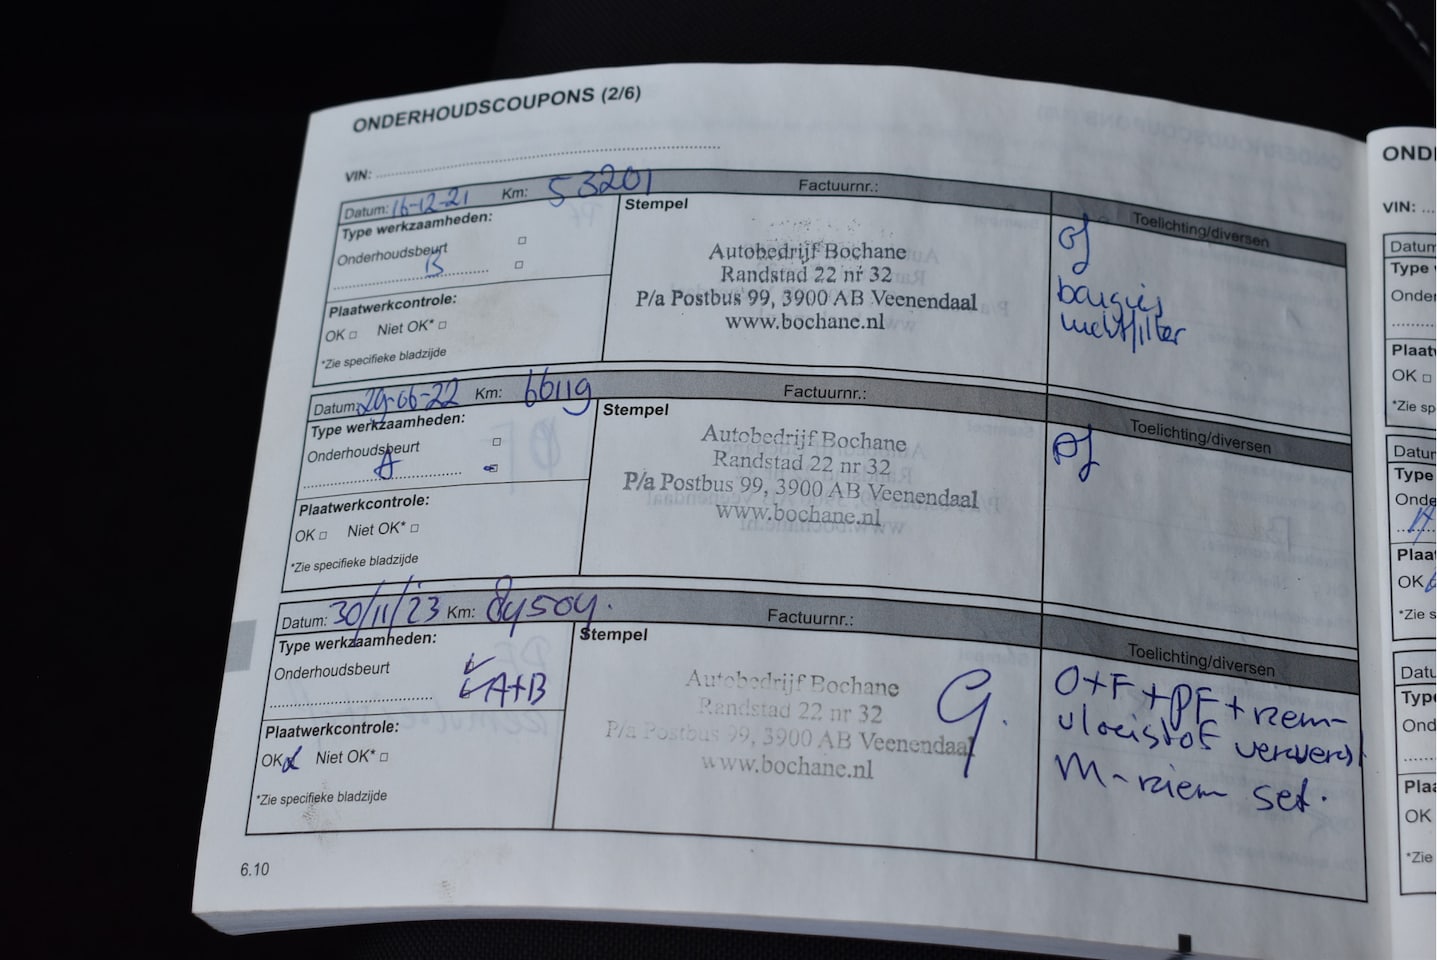 ONDERHOUDSCOUPONS (2/6)
VIN:
Datum: 16-12-21 Km: 53201 Factuurnr.:
Type werkzaamheden:
Onderhoudsbeurt
B
Plaatwerkcontrole:
OK Niet OK*
*Zie specifieke bladzijde
Stempel
Autobedrijf Bochane
Randstad 22 nr 32
P/a Postbus 99, 3900 AB Veenendaal
www.bochane.nl
Toelichting/diversen
bougies
luchtfilter
Datum: 29-06-22 Km: 66119 Factuurnr.:
Type werkzaamheden:
Onderhoudsbeurt
A
Plaatwerkcontrole:
OK Niet OK*
*Zie specifieke bladzijde
Stempel
Autobedrijf Bochane
Randstad 22 nr 32
P/a Postbus 99, 3900 AB Veenendaal
www.bochane.nl
Toelichting/diversen
Datum: 30/11/23 Km: Factuurnr.:
Type werkzaamheden:
Onderhoudsbeurt
A+B
Plaatwerkcontrole:
OK Niet OK*
*Zie specifieke bladzijde
Stempel
Autobedrijf Bochane
Randstad 22 nr 32
P/a Postbus 99, 3900 AB Veenendaal
www.bochane.nl
Toelichting/diversen
O+F+PF+riem-
vloeistof ververst
M-riem set.
6.10
OND
VIN:
Datum
Type
Onder
Plaat
OK
*Zie sp
Datum
Type
Onde
Plaa
OK
*Zie s
Datu
Type
Ond
Plaa
OK
*Zie